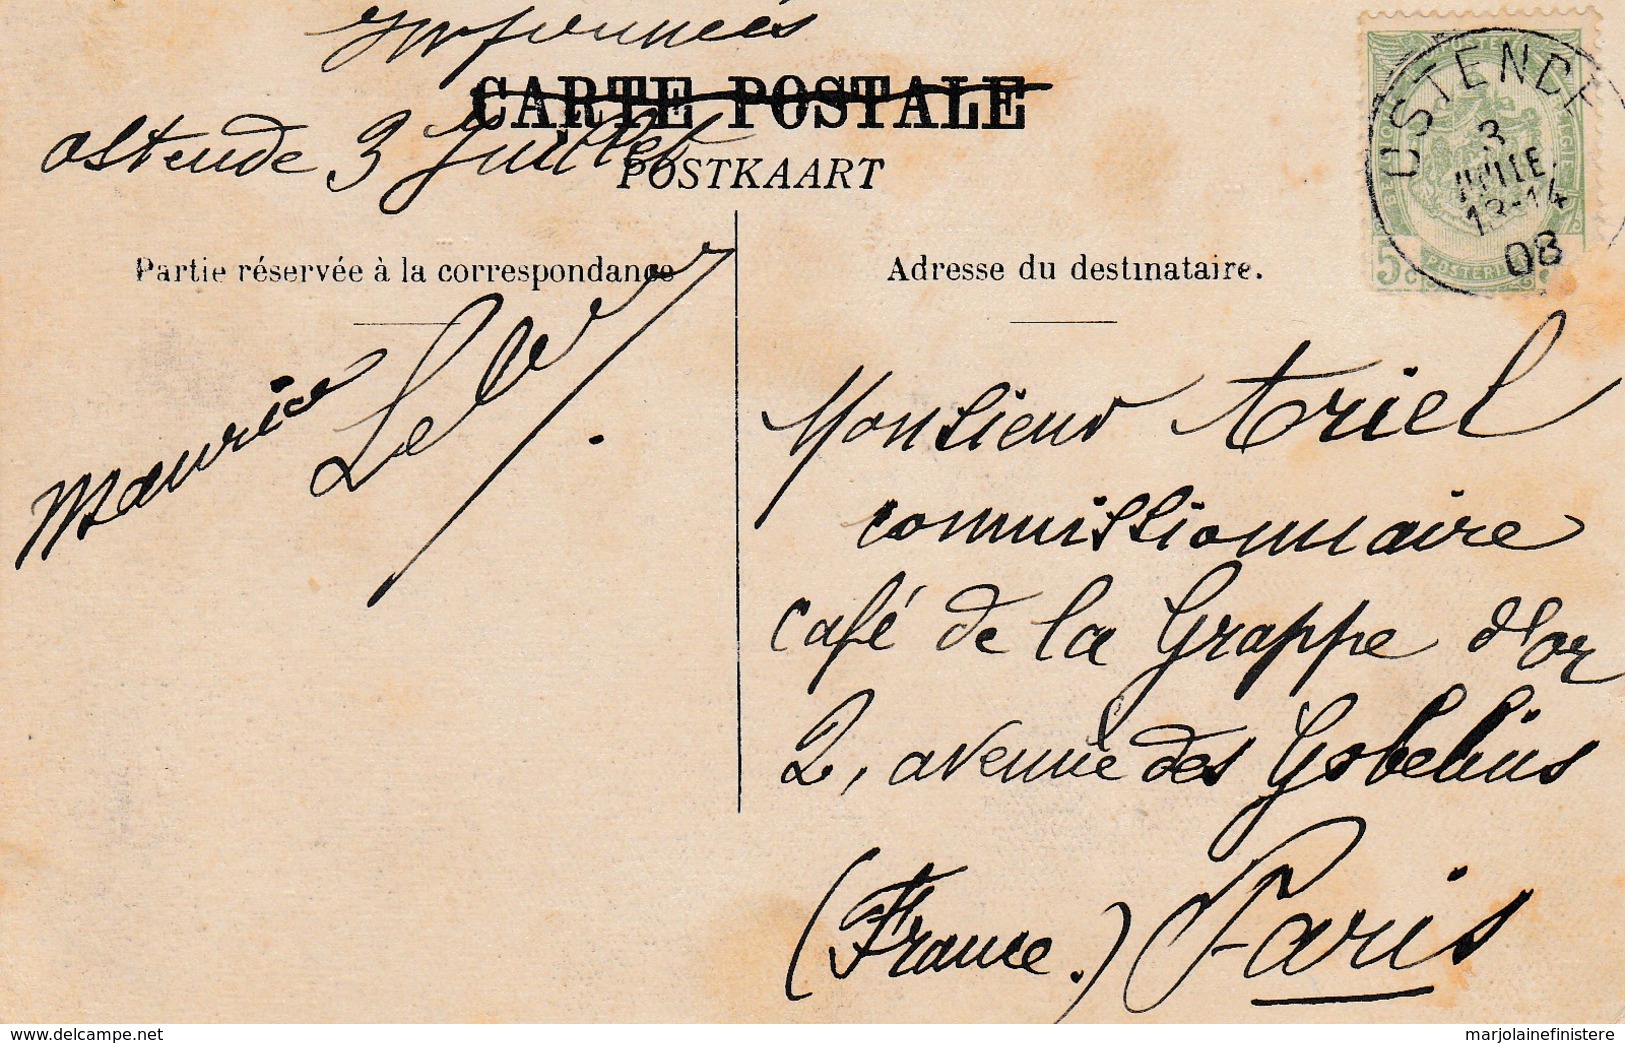 Imprimés
CARTE POSTALE
Ostende 3 Juillet
POSTKAART
Partie réservée à la correspondance
Adresse du destinataire.
OSTENDE
3
JUILLE
13-14
08
5c
Maurice Levy.
Monsieur Ariel
commissionnaire
café de la Grappe d'or
2, avenue des Gobelins
(France.) Paris
www.delcampe.net
marjolainefinistere